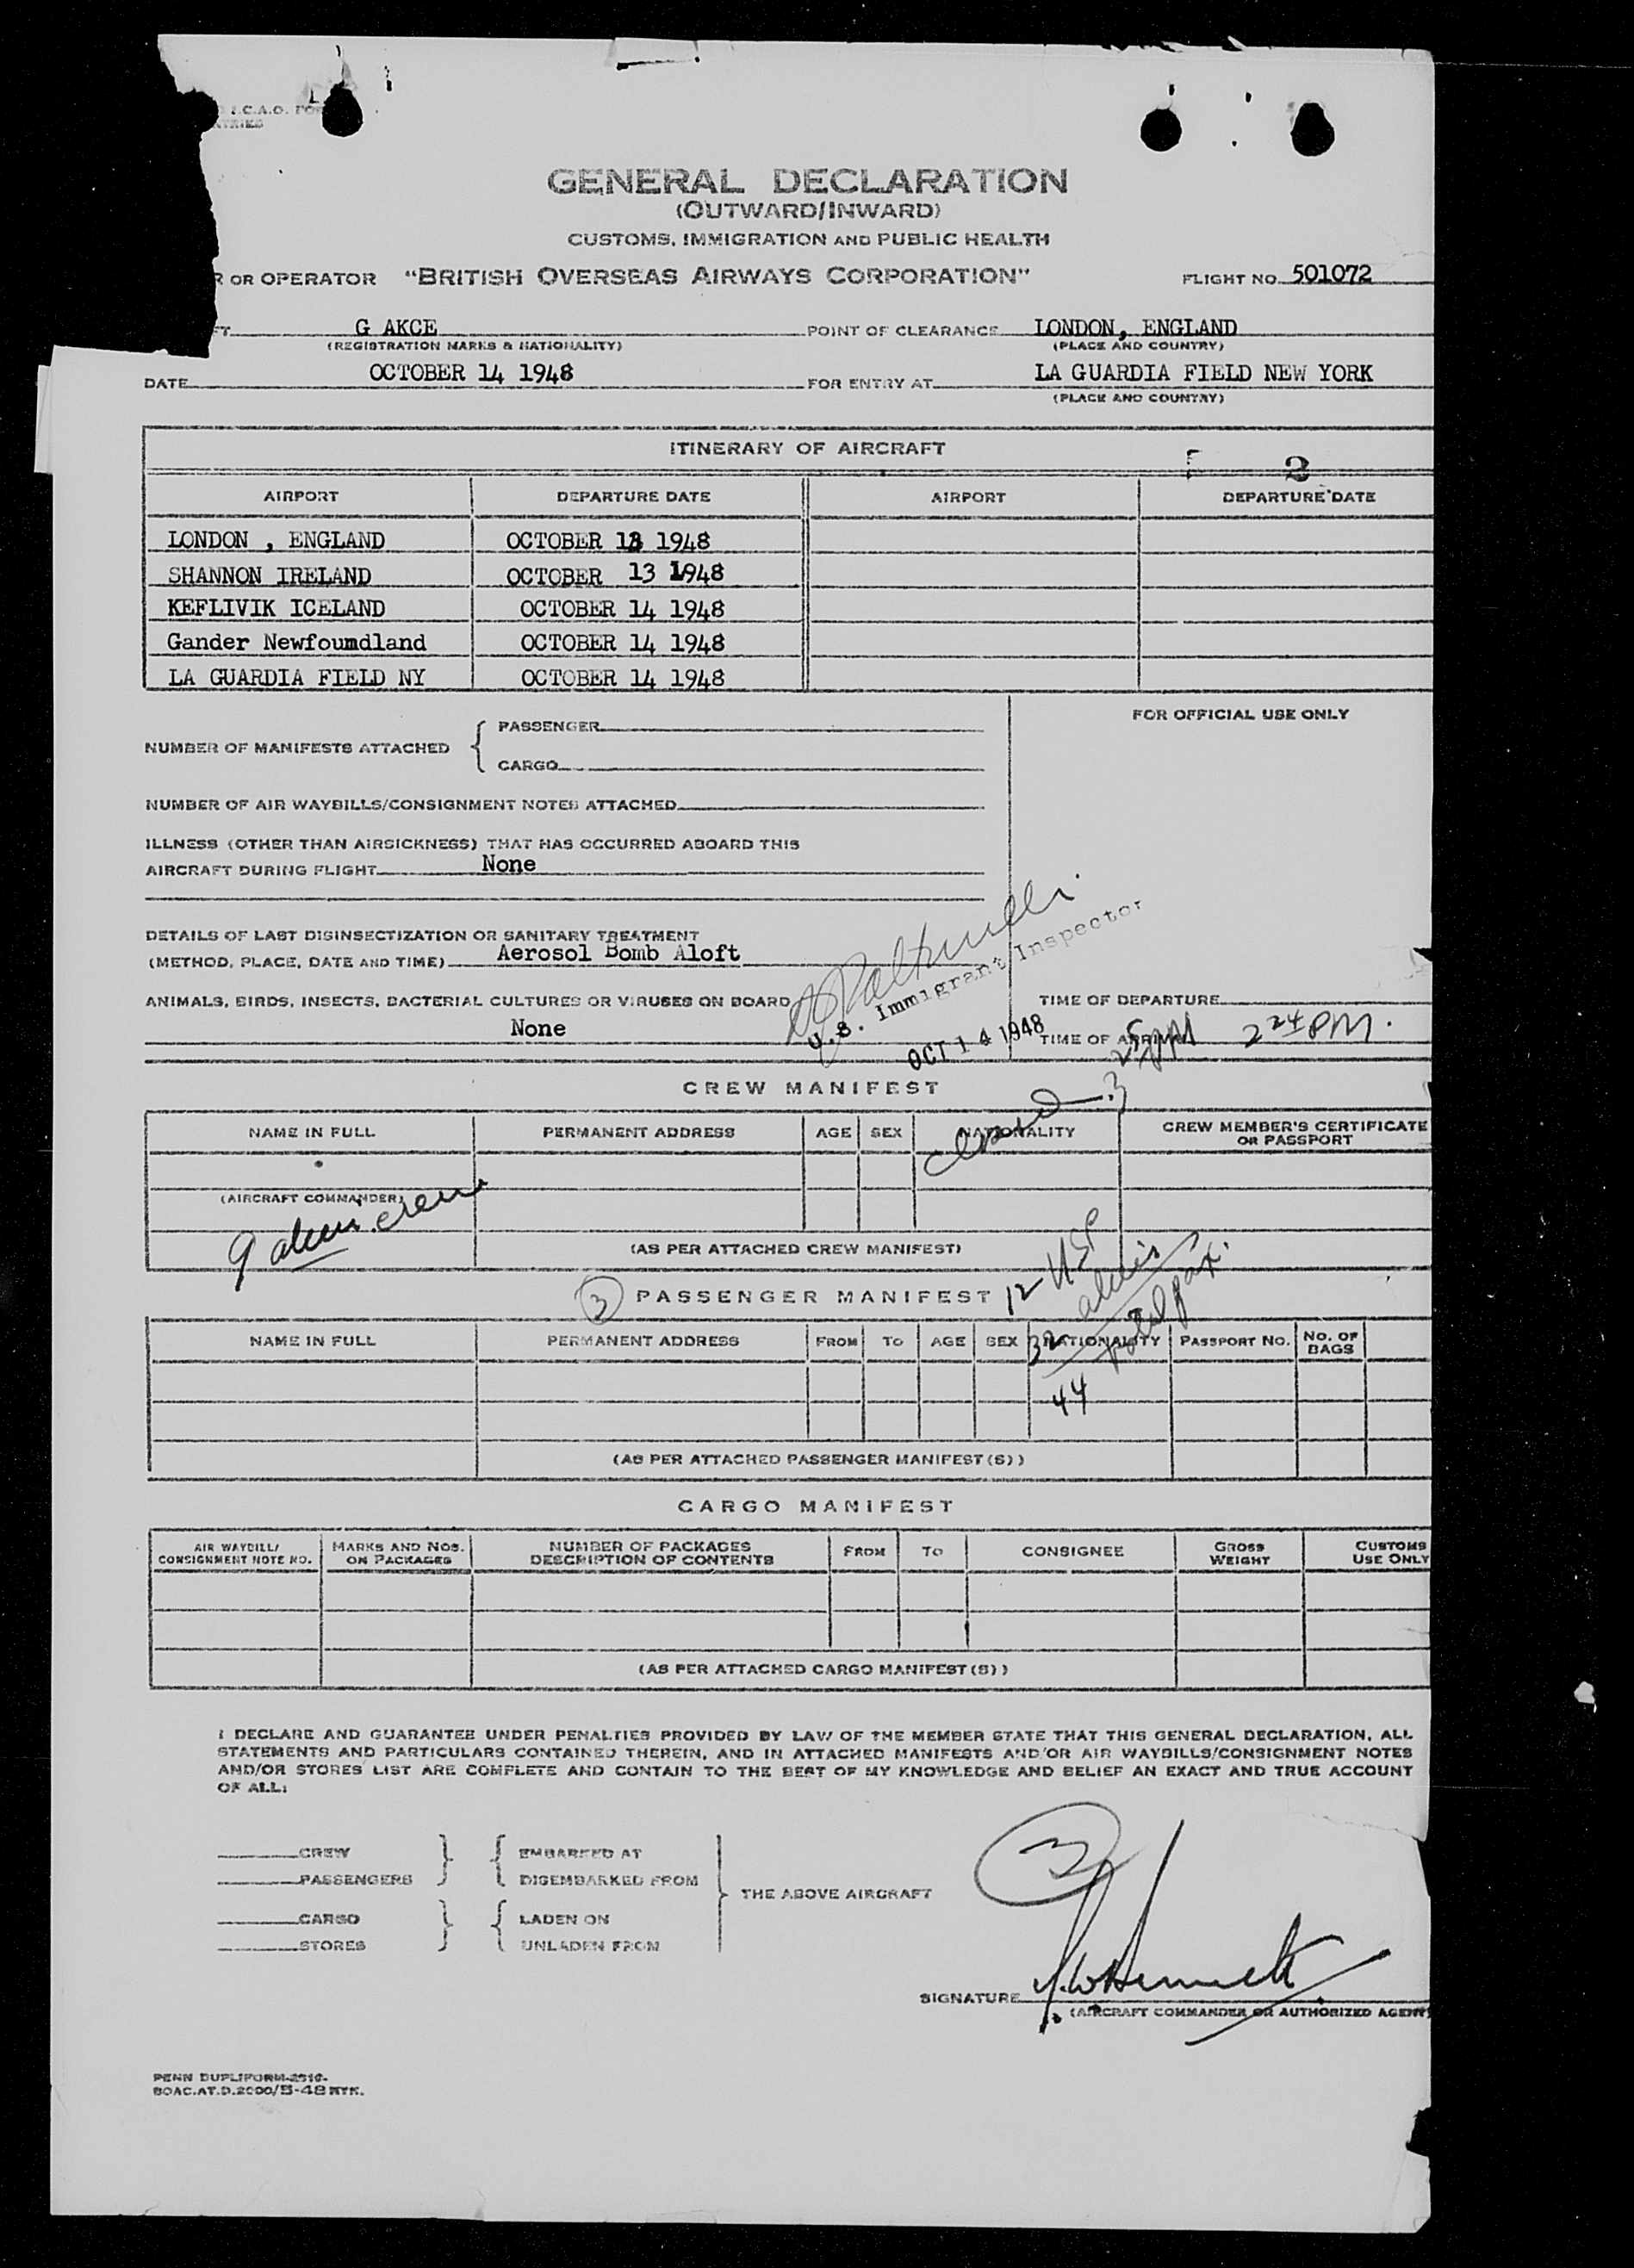 I.C.A.O. FO
GENERAL DECLARATION
(OUTWARD/INWARD)
CUSTOMS, IMMIGRATION AND PUBLIC HEALTH
R OR OPERATOR "BRITISH OVERSEAS AIRWAYS CORPORATION" FLIGHT NO. 501072
G AKCE POINT OF CLEARANCE LONDON, ENGLAND
(REGISTRATION MARKS & NATIONALITY) (PLACE AND COUNTRY)
DATE OCTOBER 14 1948 FOR ENTRY AT LA GUARDIA FIELD NEW YORK
(PLACE AND COUNTRY)
ITINERARY OF AIRCRAFT
2
AIRPORT DEPARTURE DATE AIRPORT DEPARTURE DATE
LONDON , ENGLAND OCTOBER 13 1948
SHANNON IRELAND OCTOBER 13 1948
KEFLIVIK ICELAND OCTOBER 14 1948
Gander Newfoumdland OCTOBER 14 1948
LA GUARDIA FIELD NY OCTOBER 14 1948
FOR OFFICIAL USE ONLY
NUMBER OF MANIFESTS ATTACHED { PASSENGER
CARGO
NUMBER OF AIR WAYBILLS/CONSIGNMENT NOTES ATTACHED
ILLNESS (OTHER THAN AIRSICKNESS) THAT HAS OCCURRED ABOARD THIS
AIRCRAFT DURING FLIGHT None
DETAILS OF LAST DISINSECTIZATION OR SANITARY TREATMENT
(METHOD, PLACE, DATE AND TIME) Aerosol Bomb Aloft
U.S. Immigrant Inspector
ANIMALS, BIRDS, INSECTS, BACTERIAL CULTURES OR VIRUSES ON BOARD
None
TIME OF DEPARTURE
OCT 14 1948
TIME OF ARRIVAL 2 24 PM.
CREW MANIFEST
NAME IN FULL PERMANENT ADDRESS AGE SEX NATIONALITY CREW MEMBER'S CERTIFICATE OR PASSPORT
(AIRCRAFT COMMANDER)
9 alien crew
(AS PER ATTACHED CREW MANIFEST)
3 PASSENGER MANIFEST 12
NAME IN FULL PERMANENT ADDRESS FROM TO AGE SEX NATIONALITY PASSPORT NO. NO. OF BAGS
32 aliens
44 total pax.
(AS PER ATTACHED PASSENGER MANIFEST(S))
CARGO MANIFEST
AIR WAYBILL/ CONSIGNMENT NOTE NO. MARKS AND NOS. ON PACKAGES NUMBER OF PACKAGES DESCRIPTION OF CONTENTS FROM TO CONSIGNEE GROSS WEIGHT CUSTOMS USE ONLY
(AS PER ATTACHED CARGO MANIFEST(S))
I DECLARE AND GUARANTEE UNDER PENALTIES PROVIDED BY LAW OF THE MEMBER STATE THAT THIS GENERAL DECLARATION, ALL
STATEMENTS AND PARTICULARS CONTAINED THEREIN, AND IN ATTACHED MANIFESTS AND/OR AIR WAYBILLS/CONSIGNMENT NOTES
AND/OR STORES LIST ARE COMPLETE AND CONTAIN TO THE BEST OF MY KNOWLEDGE AND BELIEF AN EXACT AND TRUE ACCOUNT
OF ALL:
CREW } { EMBARKED AT
PASSENGERS DISEMBARKED FROM
THE ABOVE AIRCRAFT
CARGO } { LADEN ON
STORES UNLADEN FROM
3
SIGNATURE
(AIRCRAFT COMMANDER OR AUTHORIZED AGENT)
PENN DUPLIFORM-2910-
BOAC.AT.D.2000/5-48 NYK.